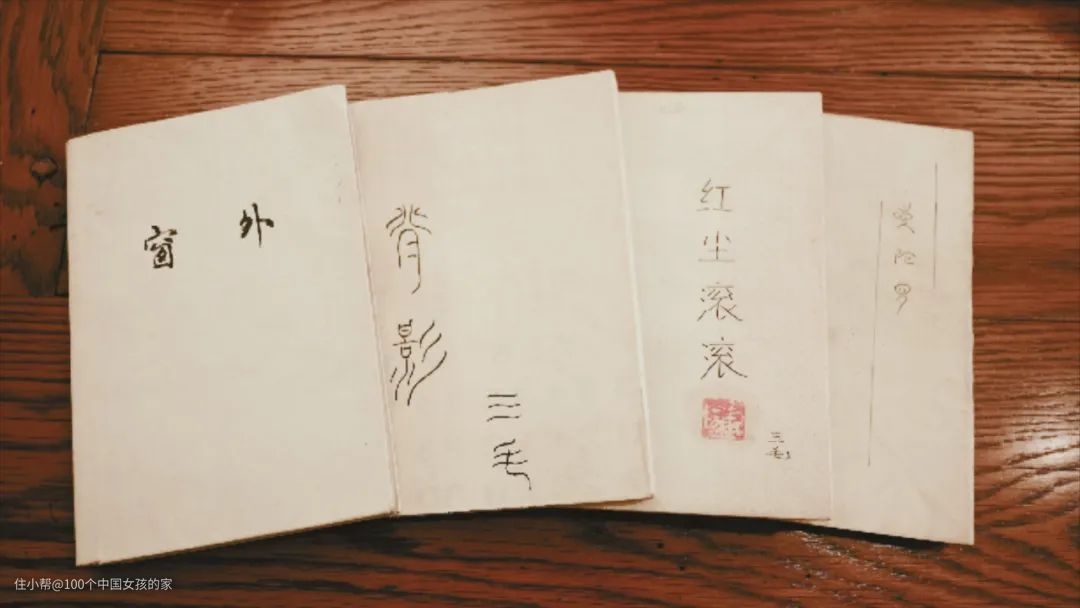 窗外
背影
三毛
红尘滚滚
三毛
曼陀罗
住小帮@100个中国女孩的家